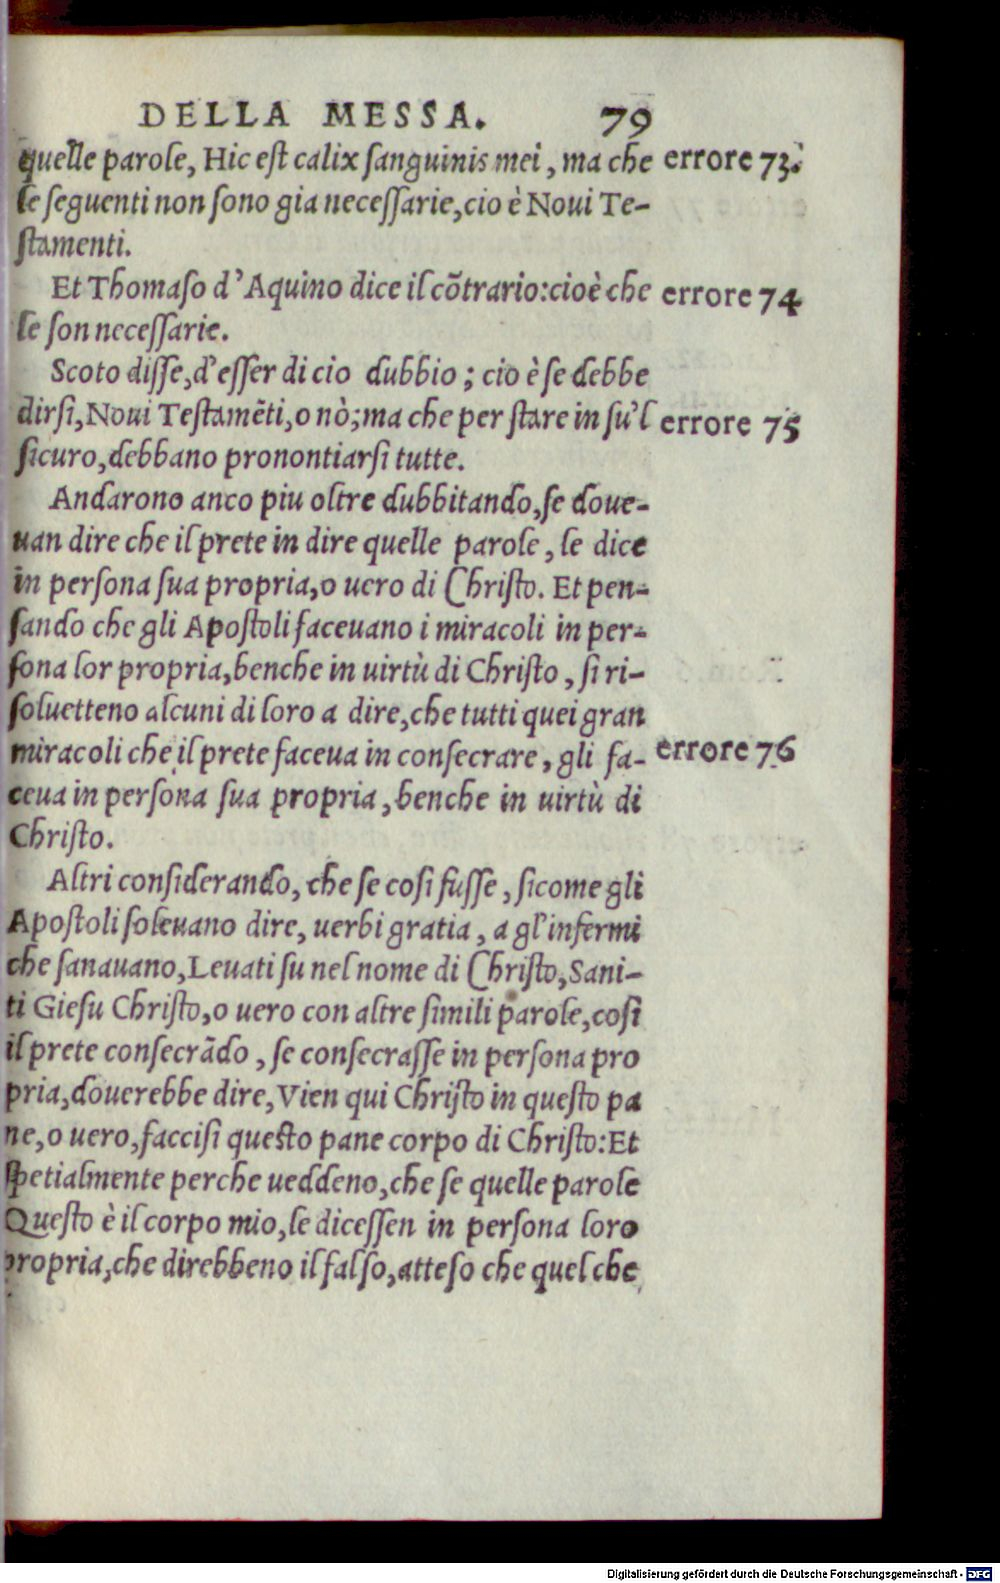 DELLA MESSA. 79
quelle parole, Hic est calix sanguinis mei, ma che errore 73.
le seguenti non sono gia necessarie, cio è Noui Te-
stamenti.
Et Thomaso d'Aquino dice il cõtrario: cioè che errore 74
le son necessarie.
Scoto disse, d'esser di cio dubbio; cio è se debbe
dirsi, Noui Testamẽti, o nò; ma che per stare in su'l errore 75
sicuro, debbano pronontiarsi tutte.
Andarono anco piu oltre dubbitando, se doue-
uan dire che il prete in dire quelle parole, le dice
in persona sua propria, o uero di Christo. Et pen-
sando che gli Apostoli faceuano i miracoli in per-
sona lor propria, benche in uirtù di Christo, si ri-
soluetteno alcuni di loro a dire, che tutti quei gran
miracoli che il prete faceua in consecrare, gli fa- errore 76
ceua in persona sua propria, benche in uirtù di
Christo.
Altri considerando, che se cosi fusse, sicome gli
Apostoli soleuano dire, uerbi gratia, a gl'infermi
che sanauano, Leuati su nel nome di Christo, Sani-
ti Giesu Christo, o uero con altre simili parole, cosi
il prete consecrãdo, se consecrasse in persona pro
pria, douerebbe dire, Vien qui Christo in questo pa
ne, o uero, faccisi questo pane corpo di Christo: Et
spetialmente perche ueddeno, che se quelle parole
Questo è il corpo mio, le dicessen in persona loro
propria, che direbbeno il falso, atteso che quel che
Digitalisierung gefördert durch die Deutsche Forschungsgemeinschaft - DFG